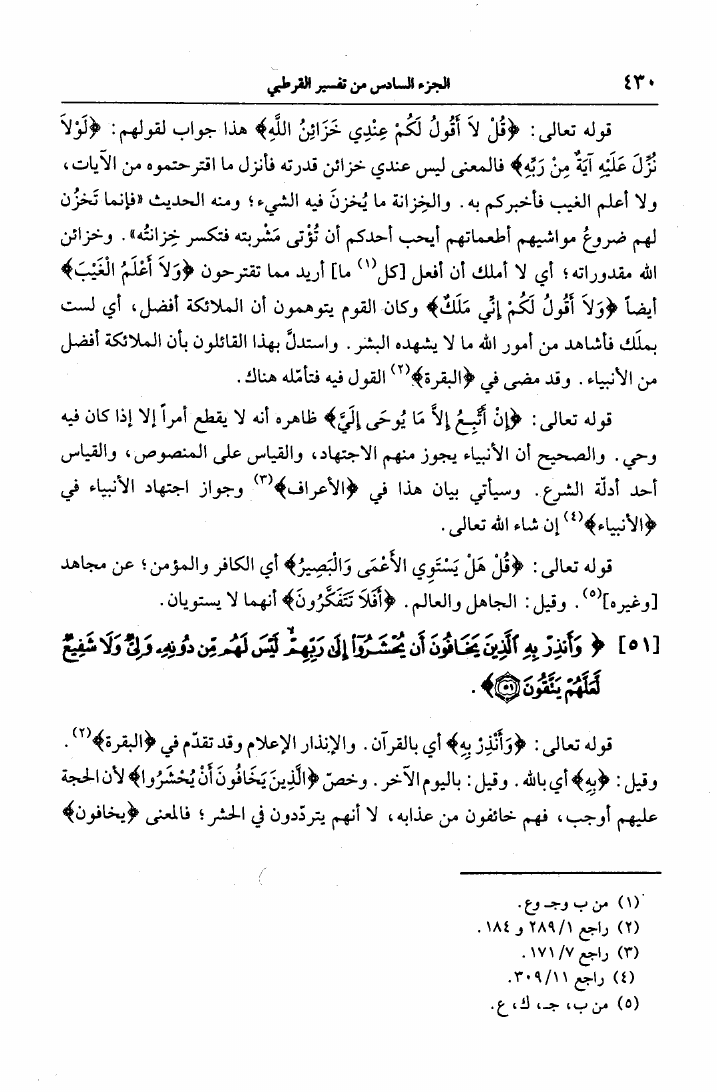 ٤٣٠ الجزء السادس من تفسير القرطبي
قوله تعالى: ﴿قُلْ لاَ أَقُولُ لَكُمْ عِنْدِي خَزَائِنُ اللَّهِ﴾ هذا جواب لقولهم: ﴿لَوْلاَ
نُزِّلَ عَلَيْهِ آيَةٌ مِنْ رَبِّهِ﴾ فالمعنى ليس عندي خزائن قدرته فأنزل ما اقترحتموه من الآيات،
ولا أعلم الغيب فأخبركم به. والخِزانة ما يُخزنَ فيه الشيء؛ ومنه الحديث «فإنما تَخزُن
لهم ضروعُ مواشيهم أطعماتهم أيحب أحدكم أن تُؤْتى مَشْربته فتكسر خِزانتُه». وخزائن
الله مقدوراته؛ أي لا أملك أن أفعل [كل(١) ما] أريد مما تقترحون ﴿وَلاَ أَعْلَمُ الْغَيْبَ﴾
أيضاً ﴿وَلاَ أَقُولُ لَكُمْ إِنِّي مَلَكٌ﴾ وكان القوم يتوهمون أن الملائكة أفضل، أي لست
بملَك فأشاهد من أمور الله ما لا يشهده البشر. واستدلّ بهذا القائلون بأن الملائكة أفضل
من الأنبياء. وقد مضى في ﴿البقرة﴾(٢) القول فيه فتأمّله هناك.
قوله تعالى: ﴿إِنْ أَتَّبِعُ إِلاَّ مَا يُوحَى إِلَيَّ﴾ ظاهره أنه لا يقطع أمراً إلا إذا كان فيه
وحي. والصحيح أن الأنبياء يجوز منهم الاجتهاد، والقياس على المنصوص، والقياس
أحد أدلّة الشرع. وسيأتي بيان هذا في ﴿الأعراف﴾(٣) وجواز اجتهاد الأنبياء في
﴿الأنبياء﴾(٤) إن شاء الله تعالى.
قوله تعالى: ﴿قُلْ هَلْ يَسْتَوِي الأَعْمَى وَالْبَصِيرُ﴾ أي الكافر والمؤمن؛ عن مجاهد
[وغيره](٥). وقيل: الجاهل والعالم. ﴿أَفَلاَ تَتَفَكَّرُونَ﴾ أنهما لا يستويان.
[٥١] ﴿وَأَنذِرْ بِهِ ٱلَّذِينَ يَخَافُونَ أَن يُحْشَرُوٓا۟ إِلَىٰ رَبِّهِمْ ۙ لَيْسَ لَهُم مِّن دُونِهِۦ وَلِىٌّ وَلَا شَفِيعٌ
لَّعَلَّهُمْ يَتَّقُونَ ٥١﴾.
قوله تعالى: ﴿وَأَنْذِرْ بِهِ﴾ أي بالقرآن. والإنذار الإعلام وقد تقدّم في ﴿البقرة﴾(٢).
وقيل: ﴿بِهِ﴾ أي بالله. وقيل: باليوم الآخر. وخصّ ﴿الَّذِينَ يَخَافُونَ أَنْ يُحْشَرُوا﴾ لأن الحجة
عليهم أوجب، فهم خائفون من عذابه، لا أنهم يتردّدون في الحشر؛ فالمعنى ﴿يخافون﴾
(١) من ب وجـ وع.
(٢) راجع ٢٨٩/١ و ١٨٤.
(٣) راجع ١٧١/٧.
(٤) راجع ٣٠٩/١١.
(٥) من ب، جـ، ك، ع.